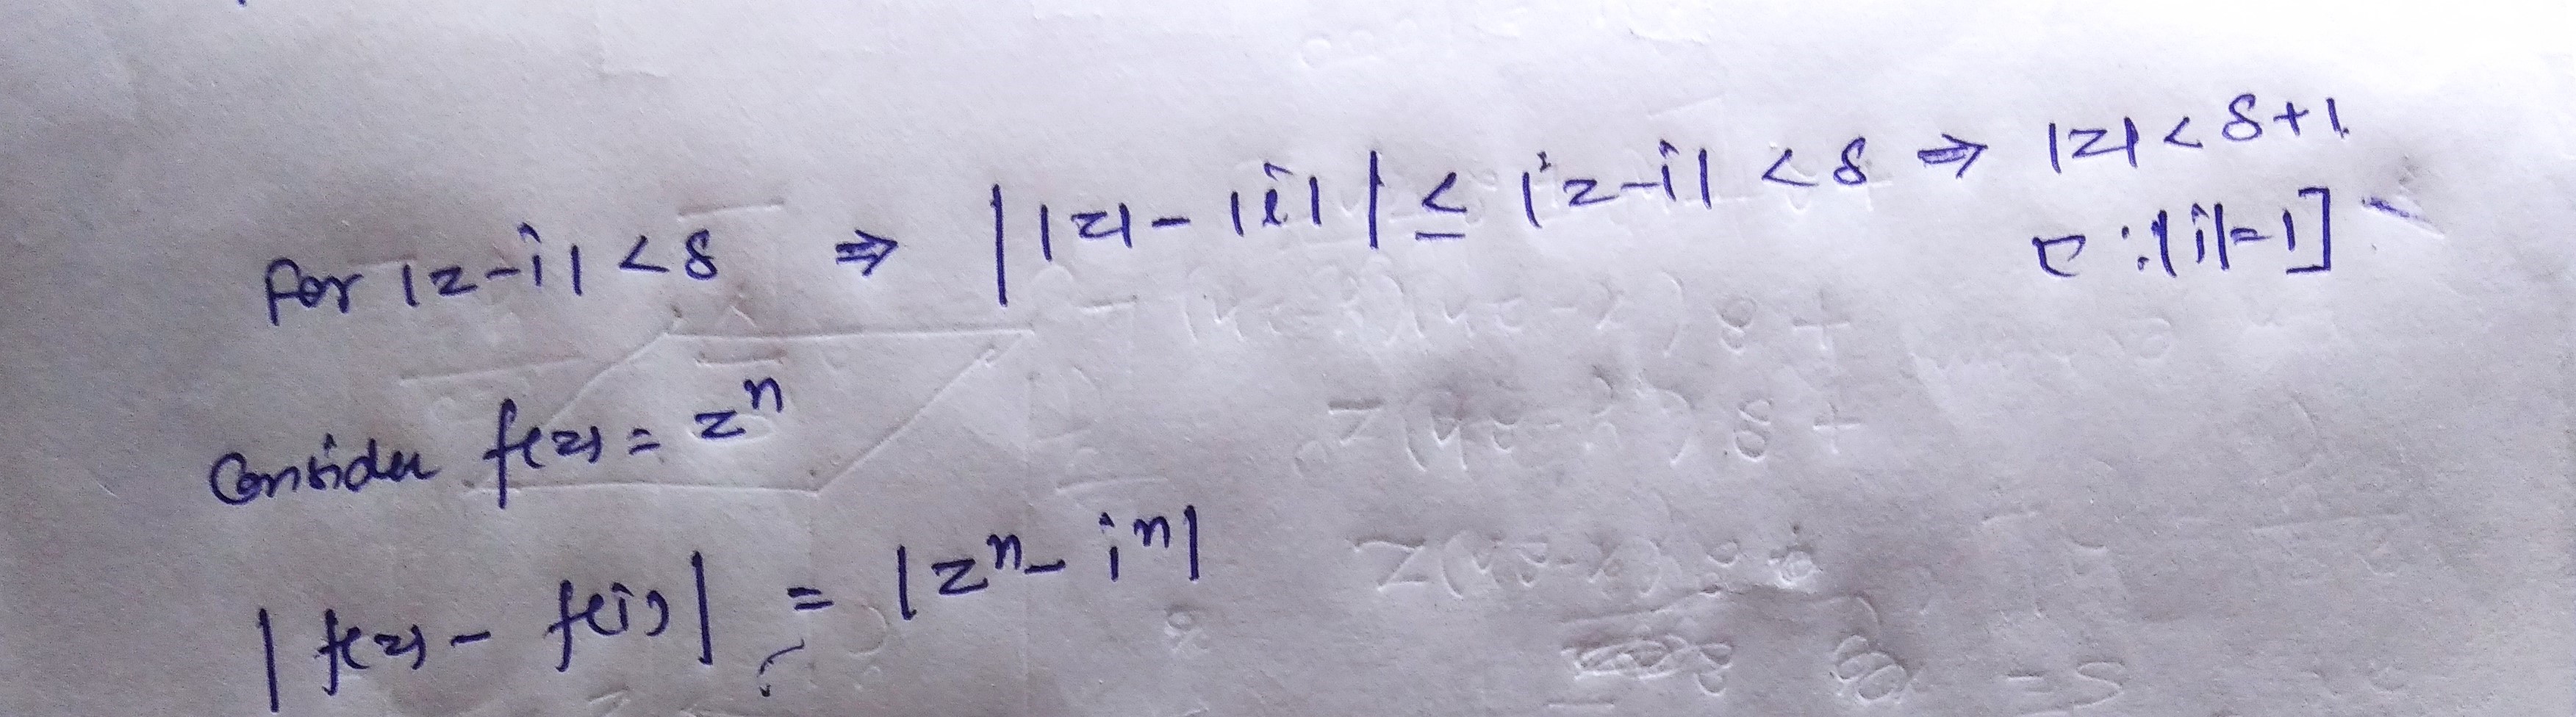 For |z-i| < δ ⇒ ||z|-|i|| ≤ |z-i| < δ ⇒ |z| < δ+1
[∵ |i|=1]
Consider f(z) = zⁿ
|f(z) - f(i)| = |zⁿ - iⁿ|